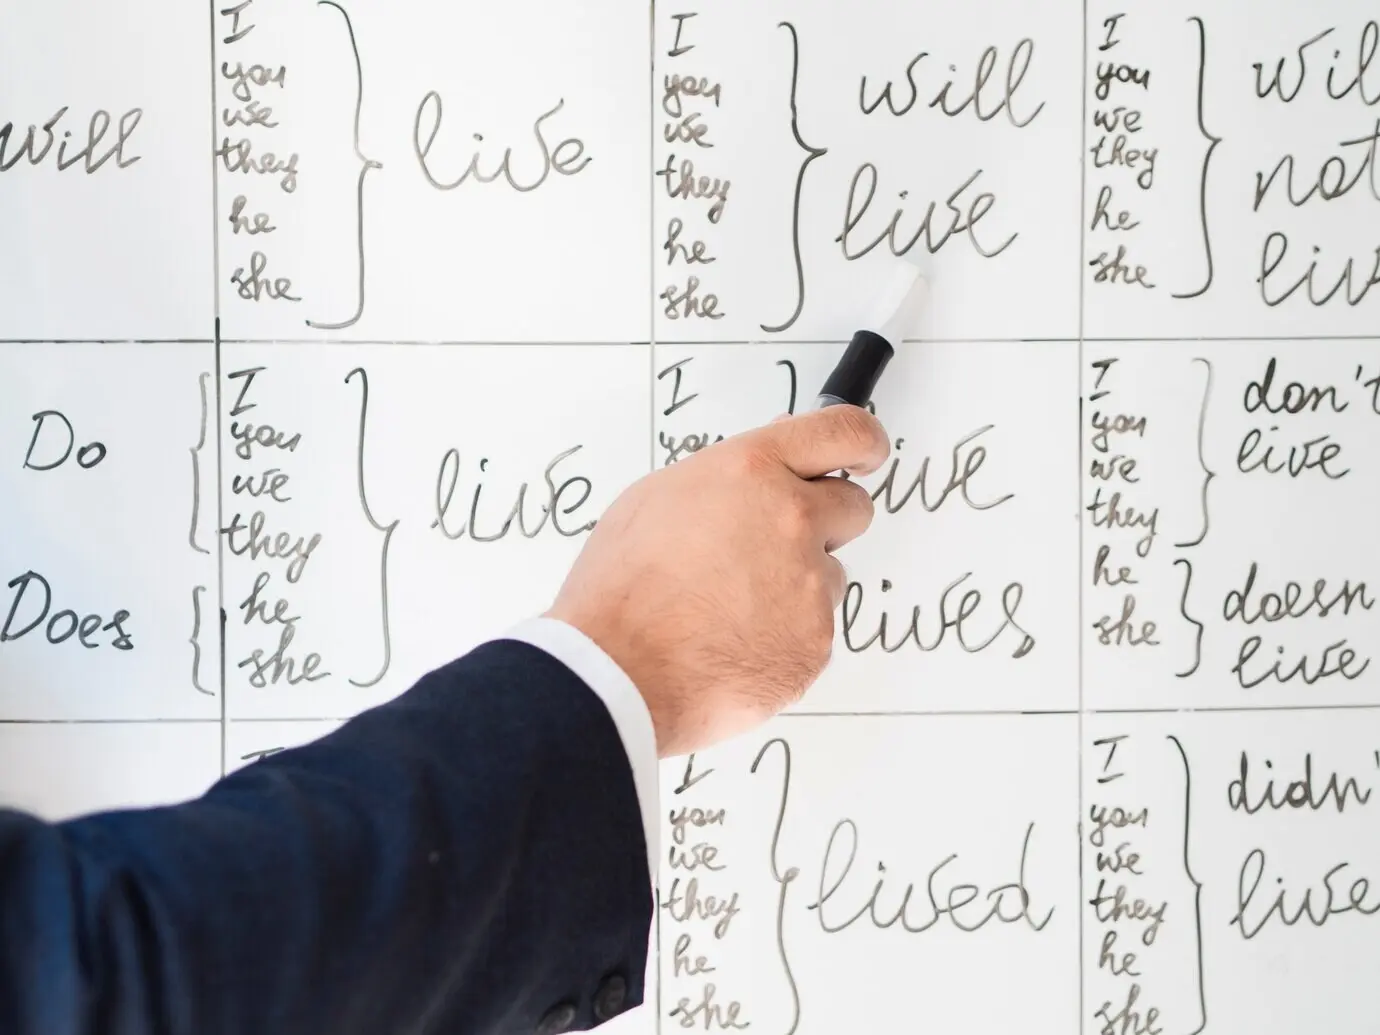 Will
I
you
we
they
he
she
live
I
you
we
they
he
she
will
live
I
you
we
they
he
she
wil
not
liv
Do
Does
I
you
we
they
he
she
live
I
you
live
lives
I
you
we
they
he
she
don't
live
doesn
live
I
I
you
we
they
he
she
lived
I
you
we
they
he
she
didn'
live